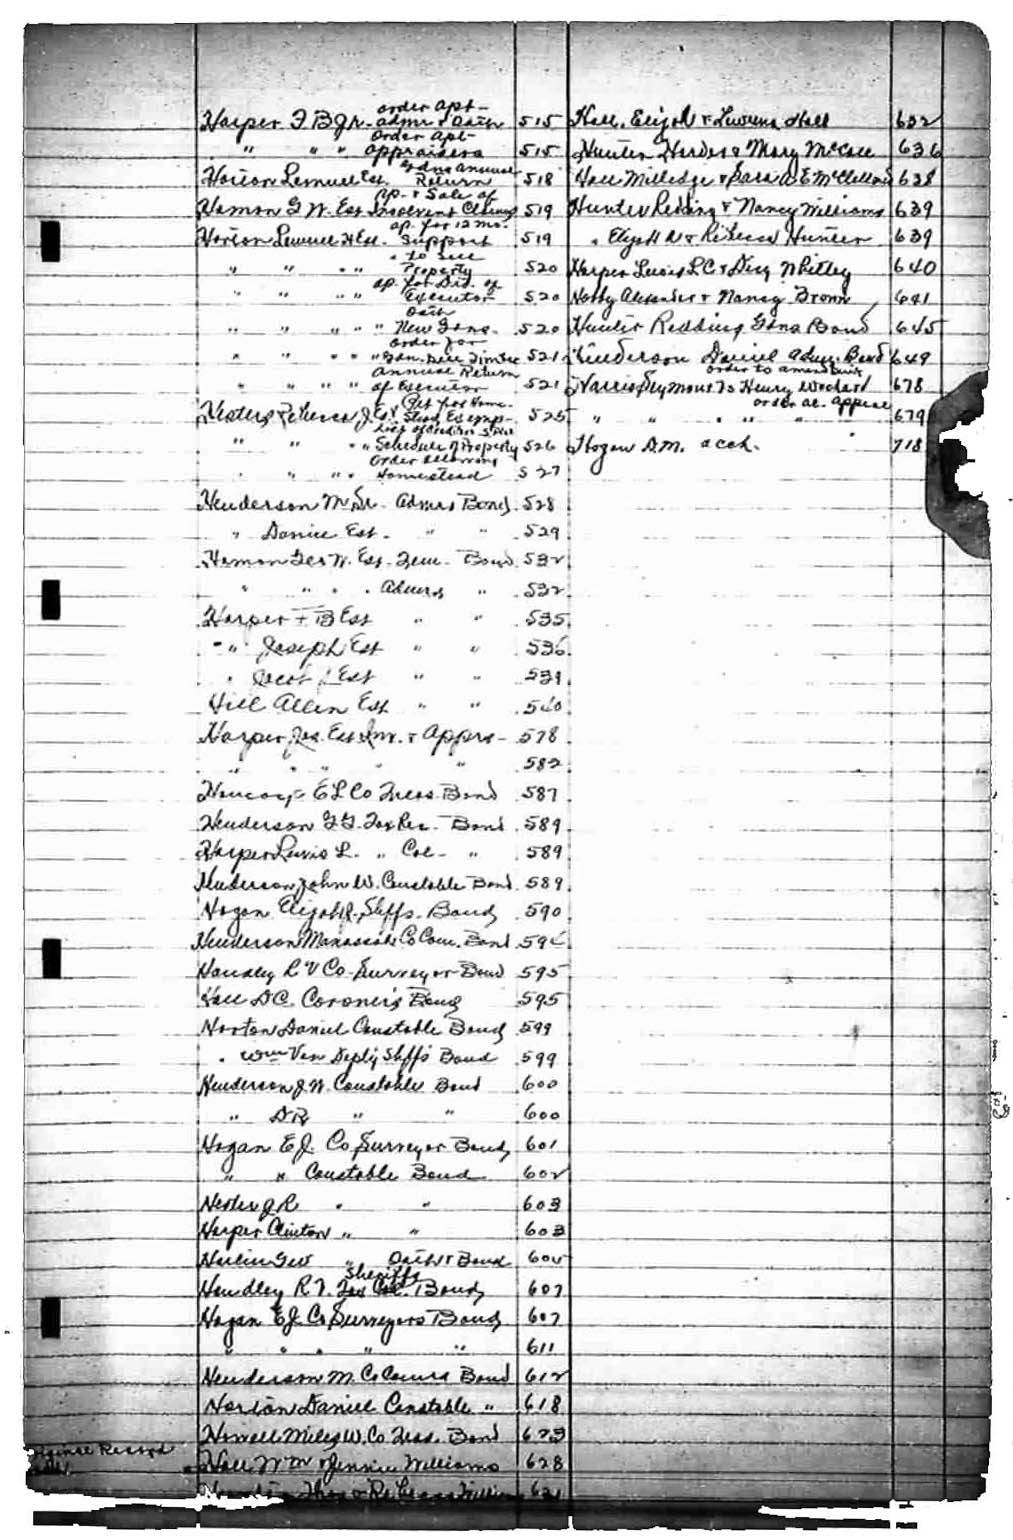 order apt-
Harper F. B. Jr. admr & Oath 515
Order apt-
" " " appraisers 515
Gdns annual
Horton Lemuel Est. Return 518
ap. & Sale of
Hamon G W. Est Insolvent 519
ap. for 12 mo.
Horton Lemuel H Est. Support 519
" to sell
" " " " Property 520
ap. for Dis. of
" " " " Executor 520
Oath
" " " " " New Gdns. 520
order for
" " " " " Gdn. Sell Timber 521
Annual Return
" " " " of Executor 521
Pet for Home-
Hesters Rebecca J. Est Stead Exemp- 525
List of Creditors &
" " " " Schedule of Property 526
Order allowing
" " " " Homestead 527
Henderson M Sr. Admrs Bond 528
" Daniel Est. " " 529
Hamon Geo W. Est. Tem. Bond 532
" " " " Admrs " 532
Harper F B Est " " 535
" " Joseph Est " " 536
" Jacob Est " " 539
Hill Allen Est " " 540
Harper Jos. Est Inv. & Apprs- 578
" " " " " 582
E L Co Treas. Bond 587
Henderson G G. Tax Rec. Bond 589
Harper Lewis L. " Col- " 589
Henderson John W. Constable Bond 589
Hogan Elijah J. Shffs. Bond 590
Henderson Manassah Co Com. Bond
Handley R V Co-Surveyor Bond 595
Hall D C. Coroner's Bond 595
Horton Daniel Constable Bond 599
" Wm Van Depty Shffs Bond 599
Henderson J. W. Constable Bond 600
" D R " " 600
Hogan E J. Co Surveyor Bond 601
" " Constable Bond 602
Hester J R " " 603
Harper Clinton " " 603
Geo " Oath & Bond
Sheriffs
Handley R V. Tax Col. Bond 607
Hogan E J. Co Surveyors Bond 607
" " " " " 611
Henderson M. Co Comrs Bond 612
Horton Daniel Constable " 618
Howell Miles W. Co Treas. Bond 623
Record
Hall W M & Jennie Williams 628
& Rebecca 631
Hall, Elijah & Luvena Hall 632
Hunter Harder & Mary McCall 636
Hall Milledge & Sara A E McClelland 638
Hunter Redding & Nancy Williams 639
" Elijah A & Rebecca Hunter 639
Harper Lewis L C & Whitley 640
Alexander & Nancy Brown 641
Hunter Redding Gdns Bond 645
Henderson Daniel Adm. Bond 649
order to amend
Harris Seymour vs Henry 678
order al. appeal
" " " " " 679
Hogan D. M. acct. 718